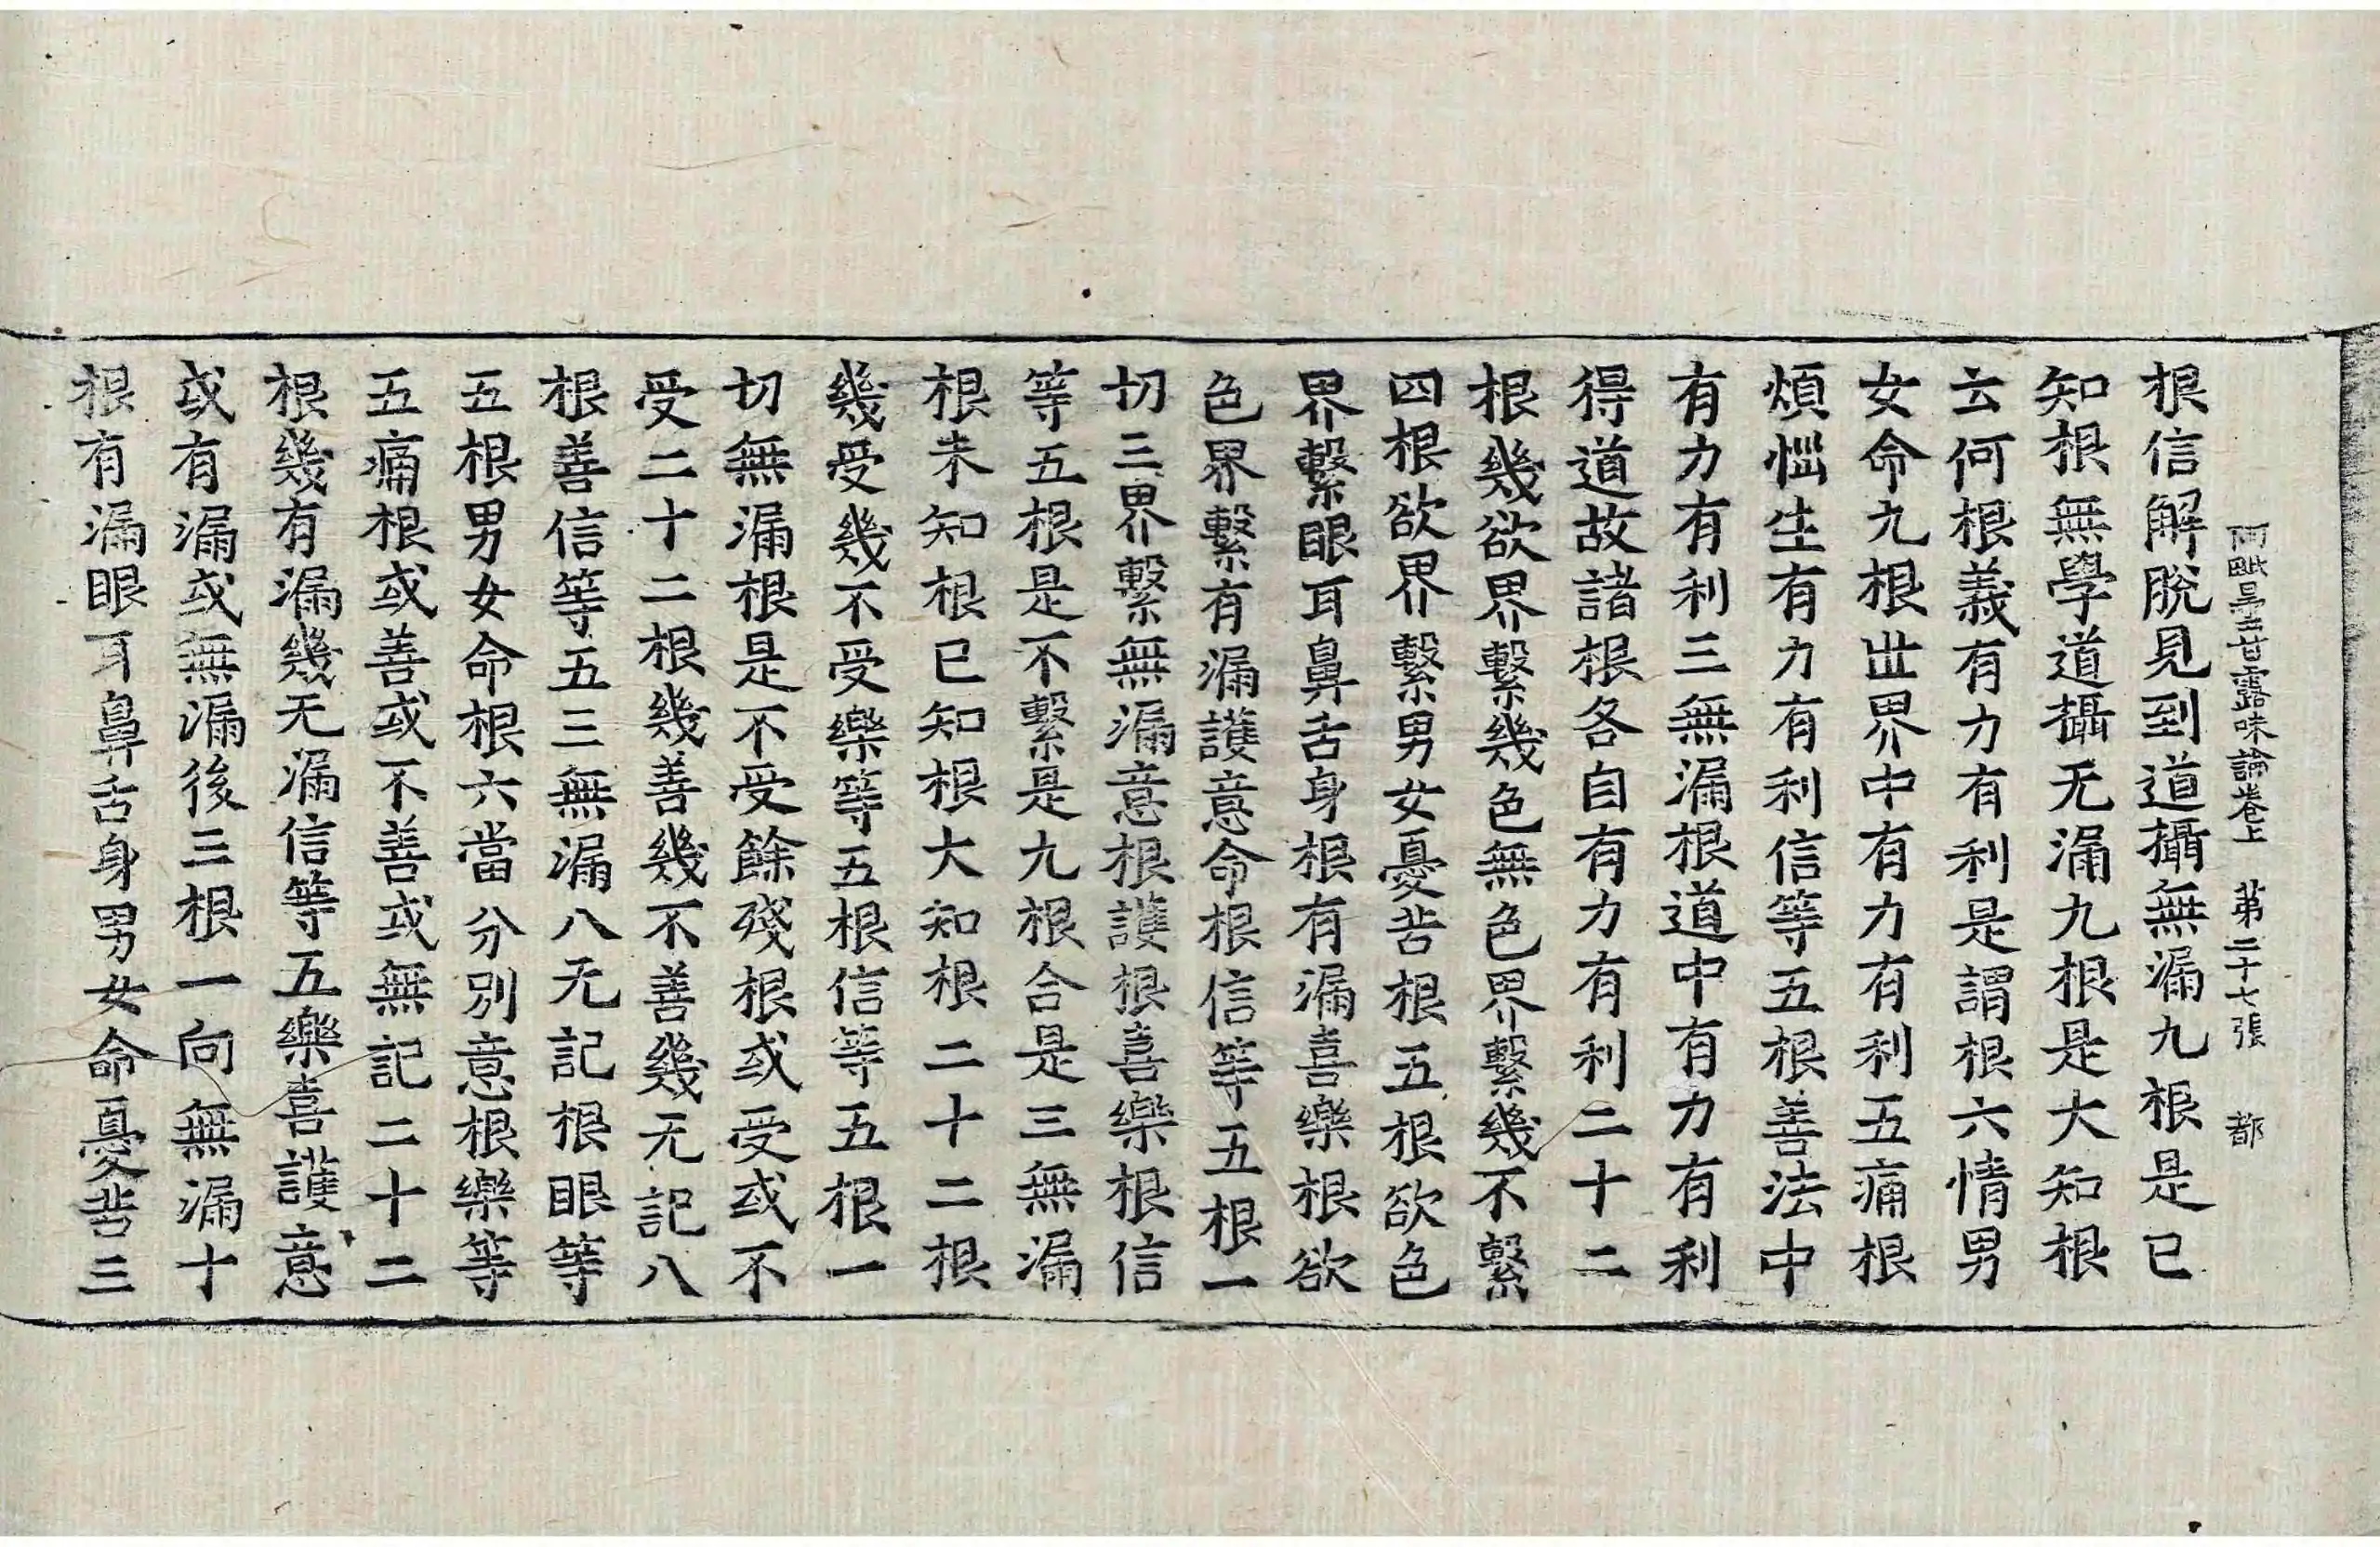 阿毗曇甘露味論卷上　第二十七張　都
根信解脫見到道攝無漏九根是已
知根無學道攝无漏九根是大知根
云何根義有力有利是謂根六情男
女命九根世界中有力有利五痛根
煩惱生有力有利信等五根善法中
有力有利三無漏根道中有力有利
得道故諸根各自有力有利二十二
根幾欲界繫幾色無色界繫幾不繫
四根欲界繫男女憂苦根五根欲色
界繫眼耳鼻舌身根有漏喜樂根欲
色界繫有漏護意命根信等五根一
切三界繫無漏意根護根喜樂根信
等五根是不繫是九根合是三無漏
根未知根已知根大知根二十二根
幾受幾不受樂等五根信等五根一
切無漏根是不受餘殘根或受或不
受二十二根幾善幾不善幾无記八
根善信等五三無漏八无記根眼等
五根男女命根六當分別意根樂等
五痛根或善或不善或無記二十二
根幾有漏幾无漏信等五樂喜護意
或有漏或無漏後三根一向無漏十
根有漏眼耳鼻舌身男女命憂苦三